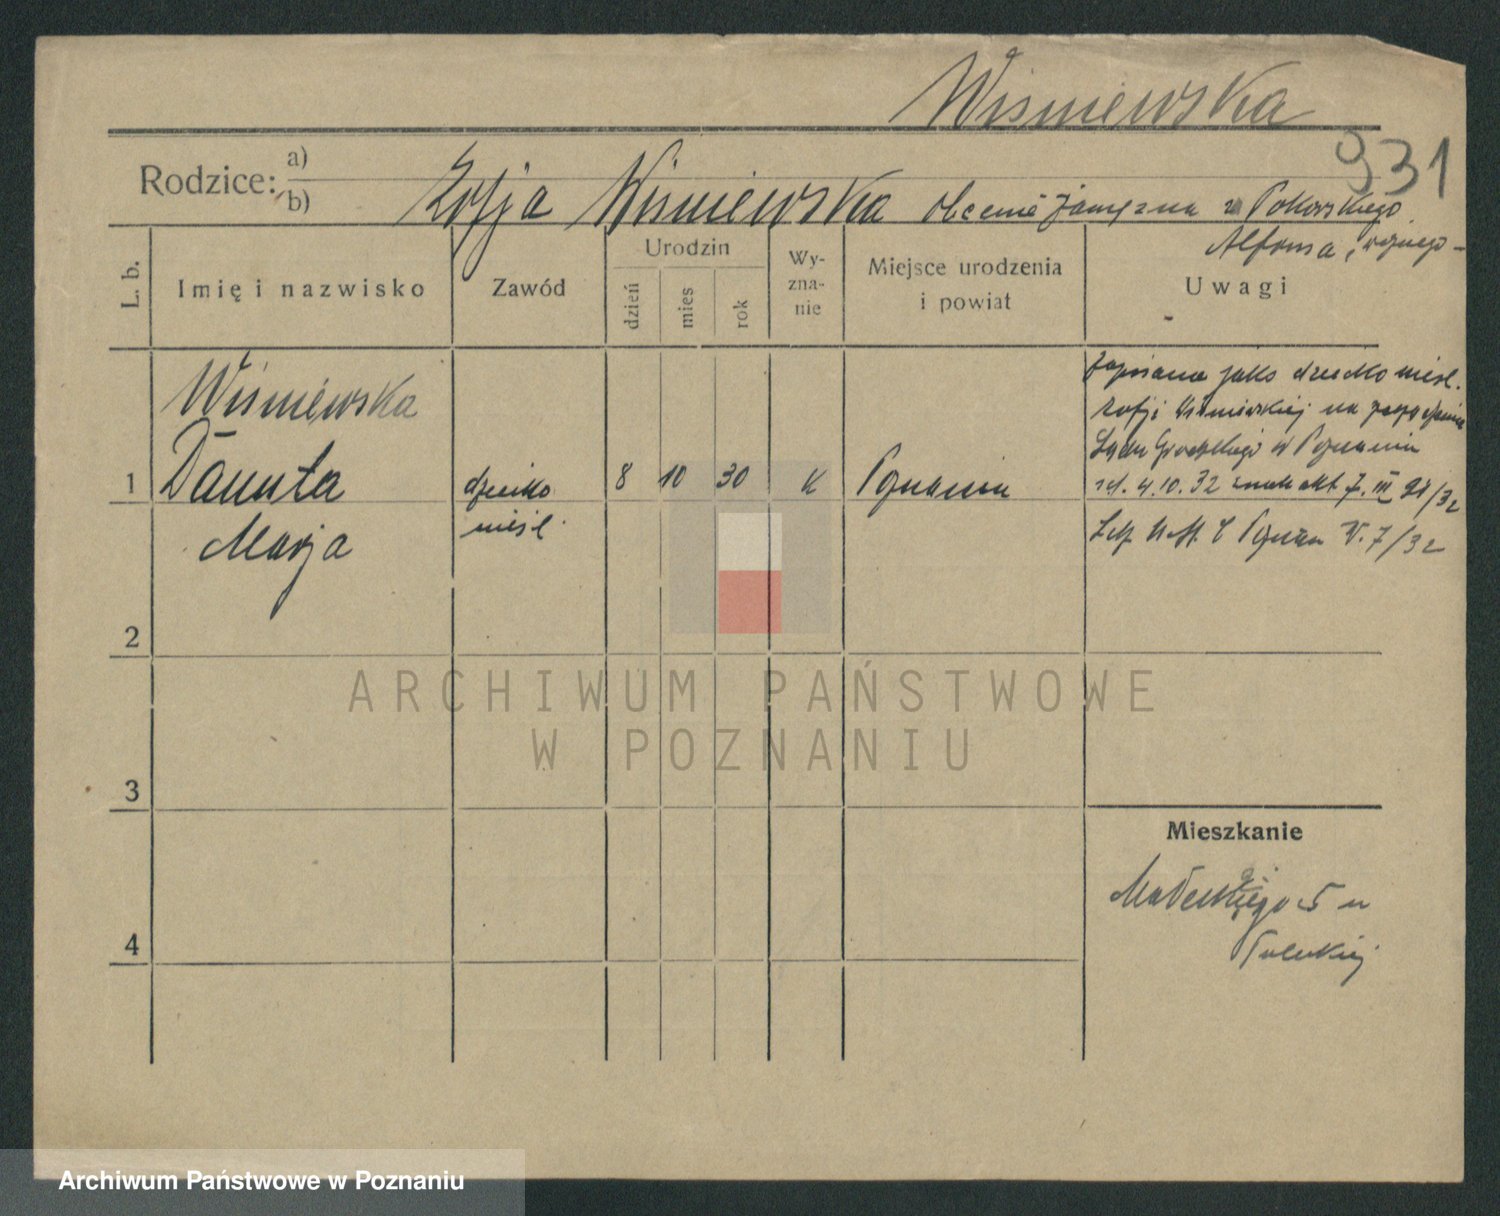 Wiśniewska
931
Rodzice: a)
b) Zofja Wiśniewska obecnie zamężna
Alfonsa,
L. b.
Imię i nazwisko
Zawód
Urodzin
dzień
mies
rok
Wy-
zna-
nie
Miejsce urodzenia
i powiat
Uwagi
1
Wiśniewska
Danuta
Marja
dziecko
nieśl.
8
10
30
k
Poznaniu
Zapisana jako dziecko nieśl.
Zofji Wiśniewskiej na
Sądu Grodzkiego w Poznaniu
4.10.32 akt 7. III 91/32
Poznań V. 7/32
2
3
4
Mieszkanie
5
ARCHIWUM PAŃSTWOWE
W POZNANIU
Archiwum Państwowe w Poznaniu